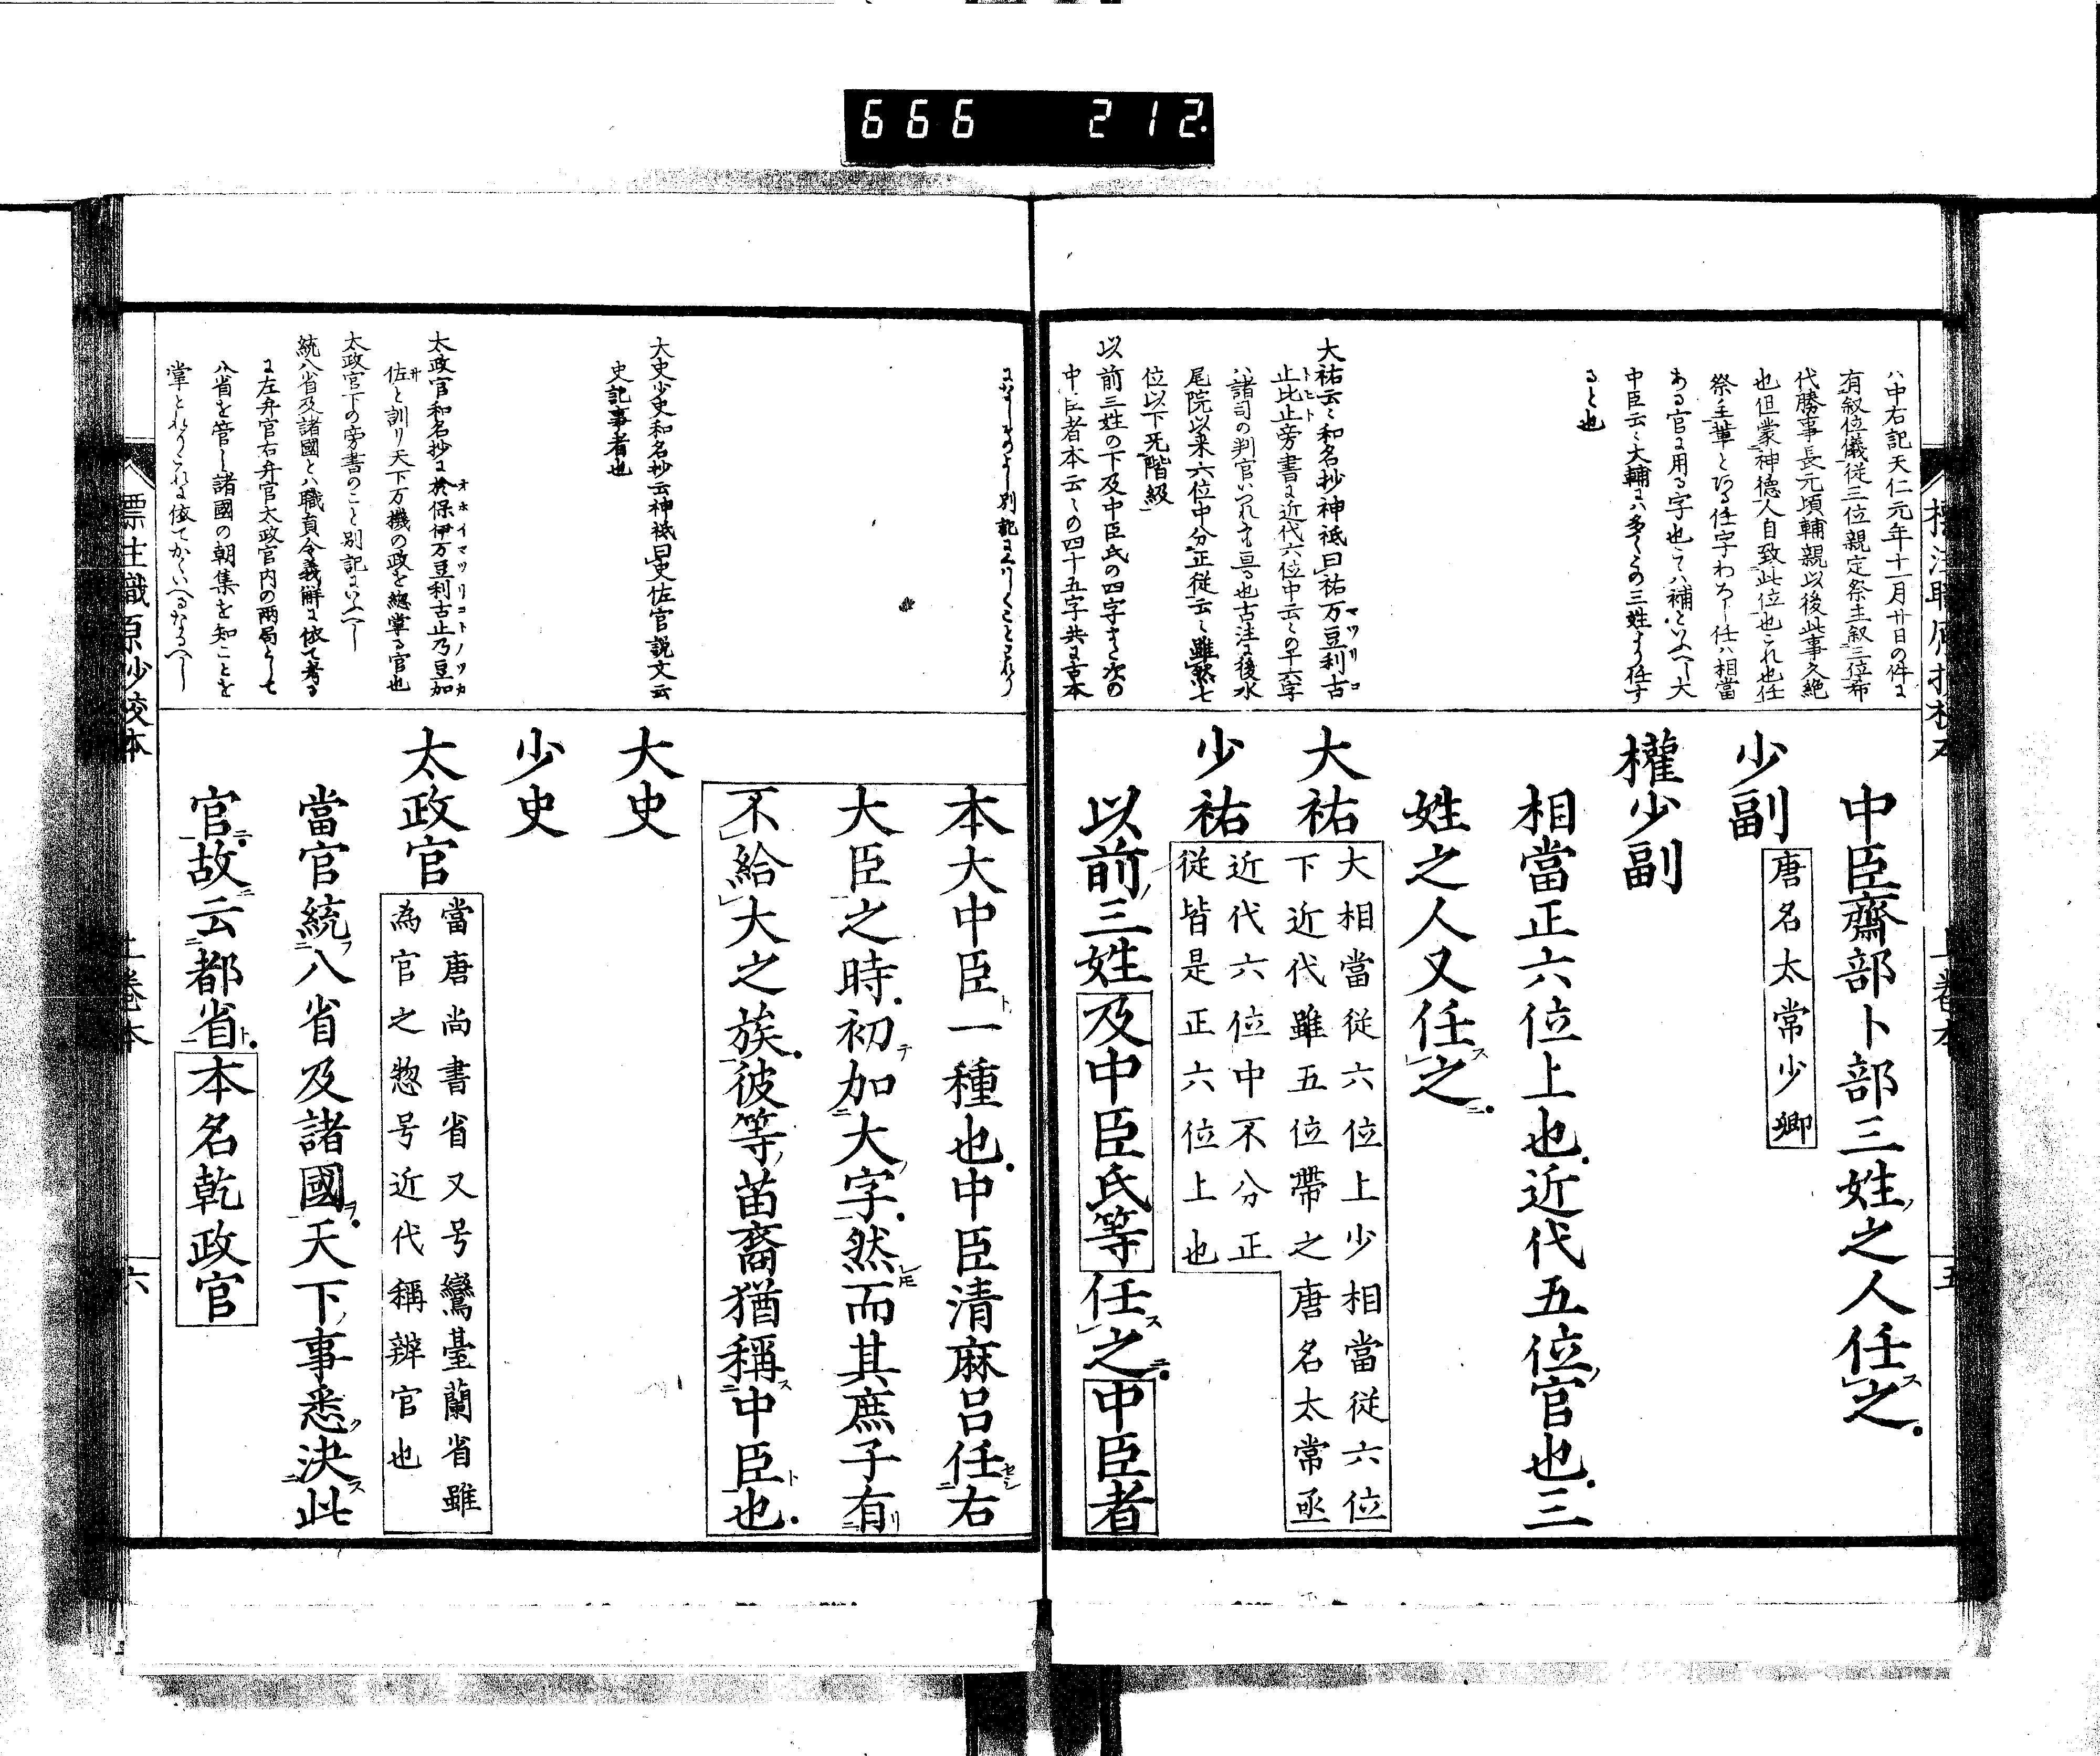 666 212.
標注職原抄校本
上巻本
五
ハ中右記天仁元年十一月廿日の件に
有叙位儀従三位親定祭主叙三位希
代勝事長元頃輔親以後此事久絶
也但蒙神徳人自致此位也これ也任
祭主輩とある任字わろし任ハ相當
ある官に用る字也
中臣云々大輔にハ多くの三姓より任す
ると也
大祐云々和名抄神祇曰祐万豆利古
止比止旁書に近代六位中云々の十六字
ハ諸司の判官いつれも亘る也古注に後水
尾院以来六位中分正従云々雖然七
位以下无階級
以前三姓の下及中臣氏の四字また次の
中臣者本云々の四十五字共に古本
中臣齋部卜部三姓ノ之人任スレ之
少副
唐名太常少卿
權少副
相當正六位上也近代五位ノ官也三
姓之人又任スレ之
大祐
大相當従六位上少相當従六位
下近代雖五位帶之唐名太常丞
少祐
近代六位中不分正
従皆是正六位上也
以前ノ三姓及中臣氏等任スレ之中臣者
大史少史和名抄云神祇曰史佐官説文云
史記事者也
太政官和名抄に於保伊万豆利古止乃豆加
オホイマツリコトノツカ
佐と訓り天下万機の政を總掌る官也
太政官下の旁書のこと別記にいへり
統八省及諸國とハ職員令義解に依て考る
に左弁官右弁官太政官内の兩局として
八省を管し諸國の朝集を知ことを
掌とれりこれに依てかくいへるなるへし
本大中臣ト一種也中臣清麻呂任セシ右
大臣之時初テ加大ノ字然レ𪜈而其庶子有リ
不給大之族彼等ノ苗裔猶稱ス中臣ト也
大史
少史
太政官
當唐尚書省又号鸞臺蘭省雖
為官之惣号近代稱辨官也
當官統ヲ八省及諸國ヲ天下ノ事悉ク決ス此
官ニ故ニ云都省ト本名乾政官
標注職原抄校本
上巻本
六